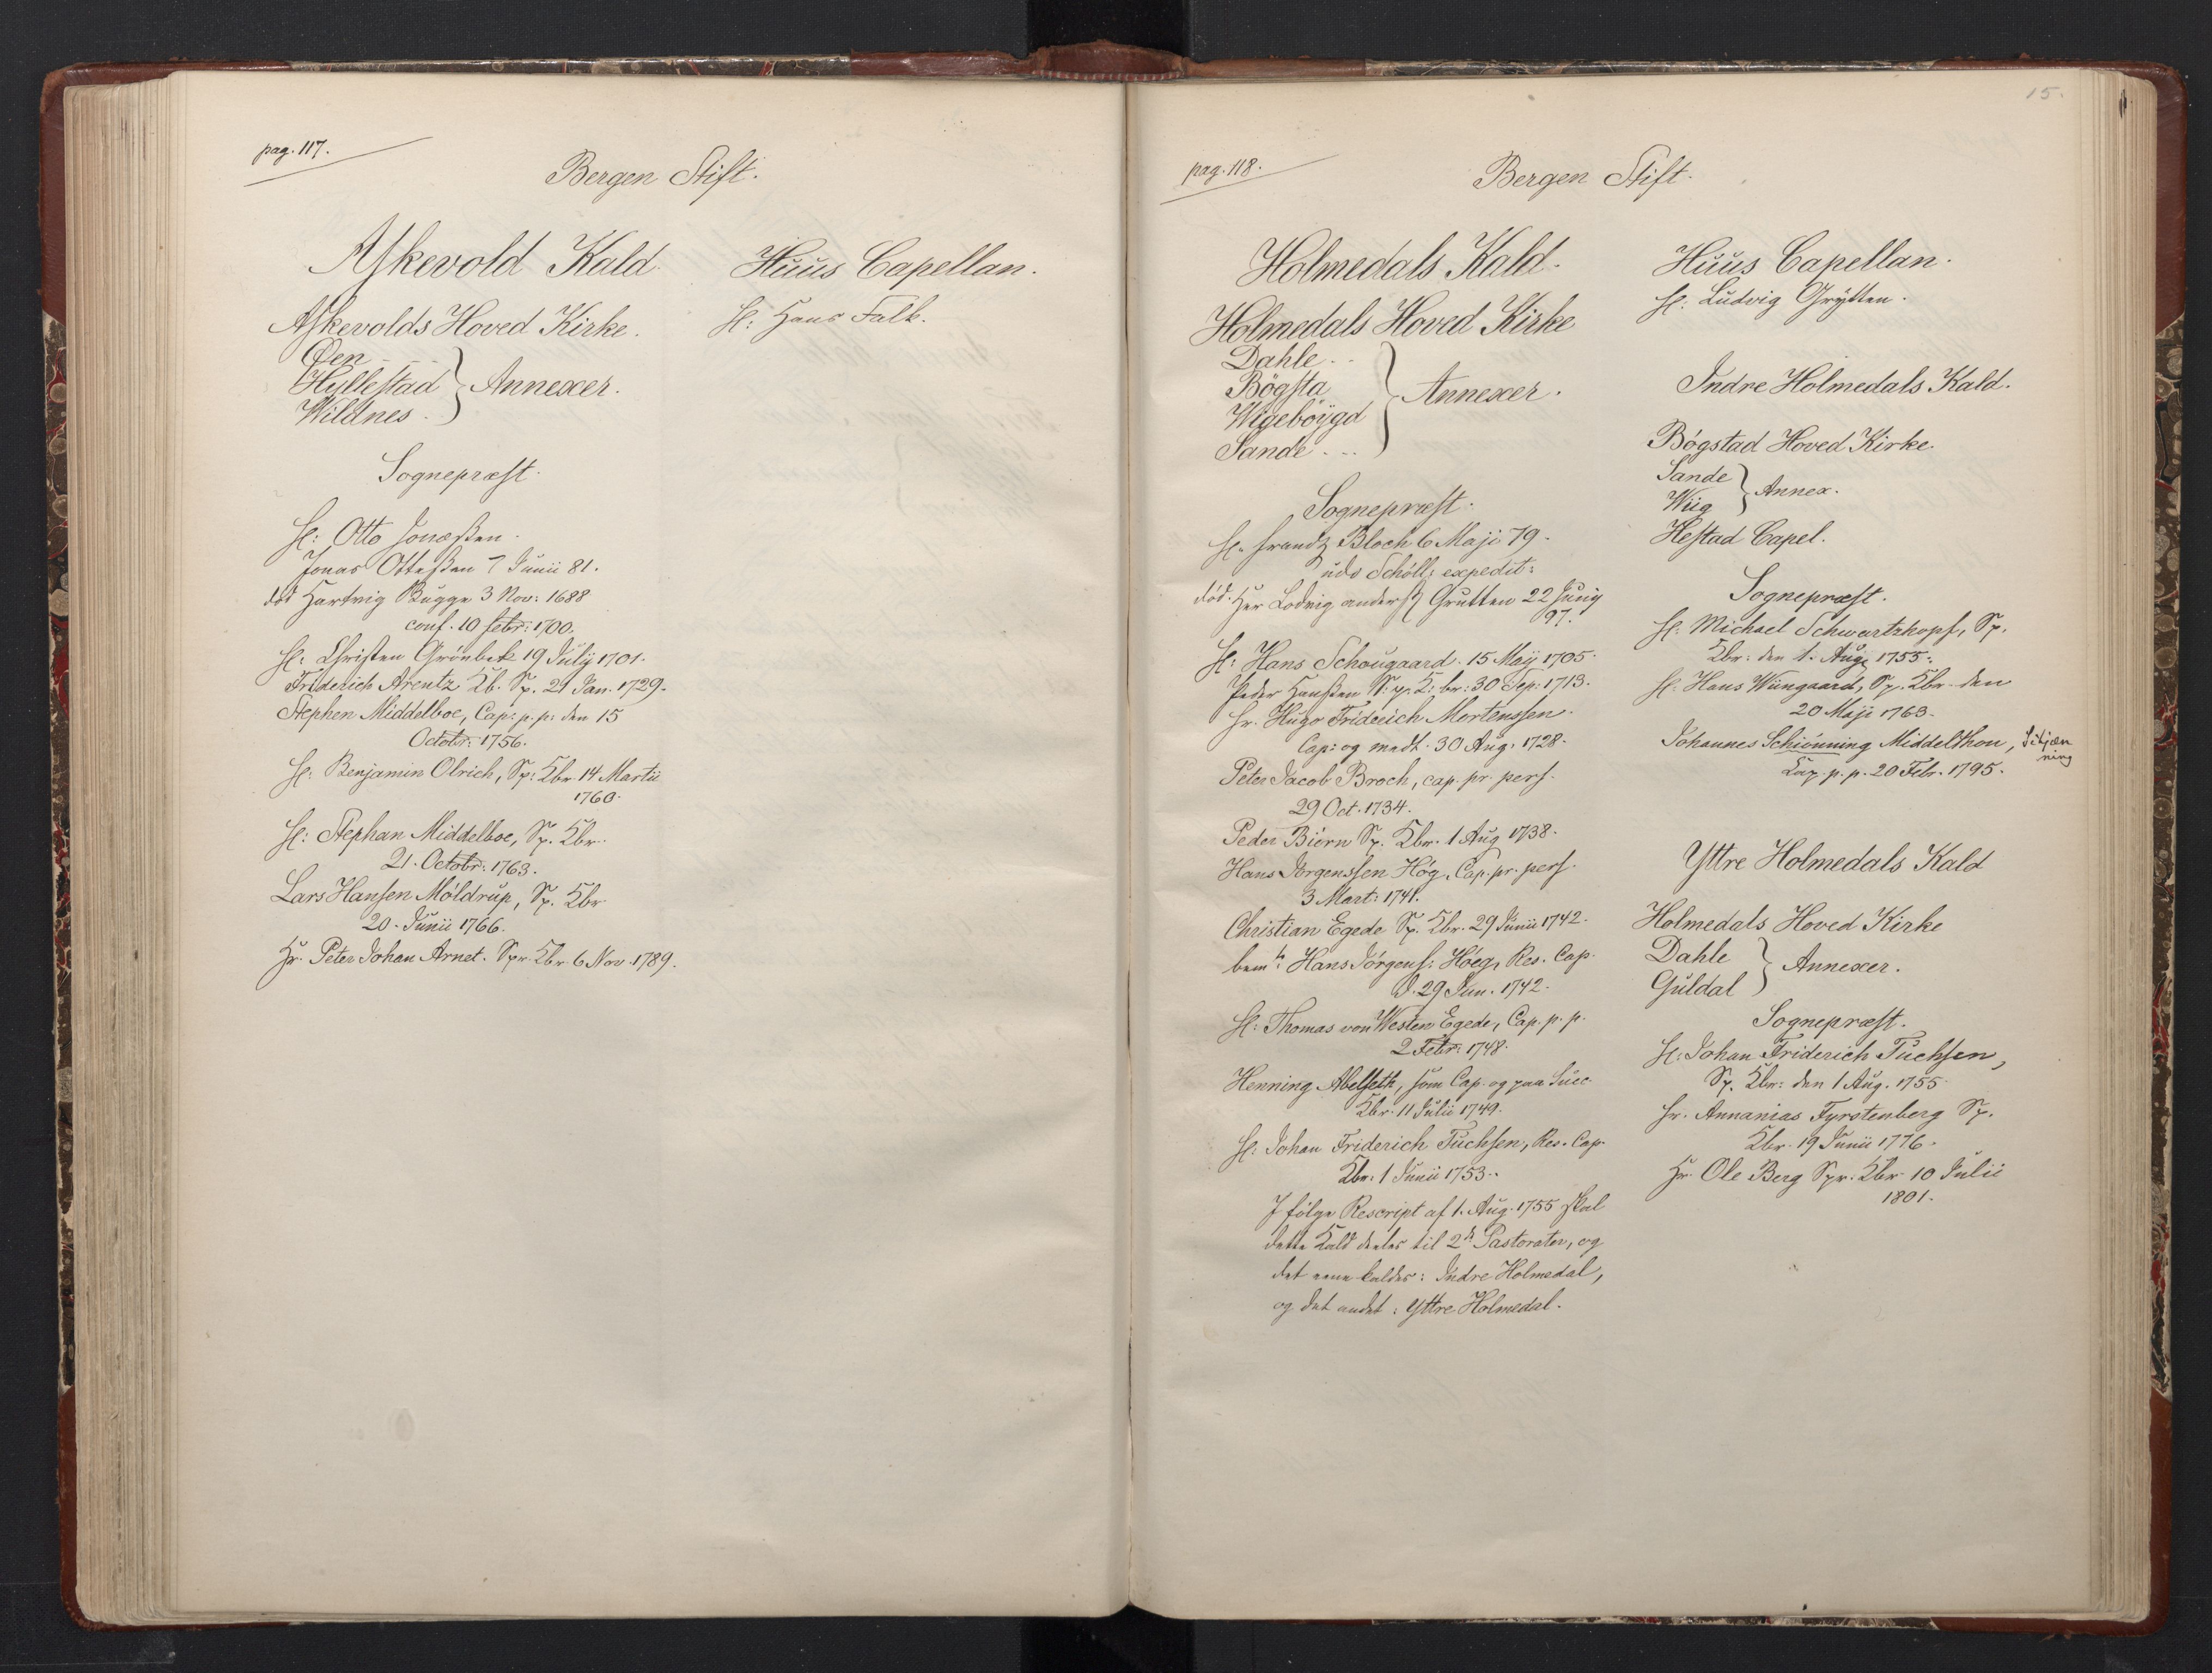 pag. 117.
Bergen Stift.
Askevold Kald
Askevolds Hoved Kirke.
Øen - - -
Hyllestad
Wildnes -
Annexer.
Sognepræst
H: Otto Jonæssen.
Jonas Ottessen 7 Junii 81.
død Hartvig Bugge 3 Nov: 1688
conf. 10 febr: 1700.
H: Christen Grönbek 19 Julij 1701.
Friderich Arentz Kb. Sp. 21 Jan. 1729.
Stephen Middelboe, Cap: p. p: den 15
Octobr: 1756.
H: Benjamin Olrich, Sp: Kbr 14 Martii
1760.
H: Stephan Middelboe, Sp. Kbr.
21. Octobr: 1763.
Lars Hansen Möldrup, Sp. Kbr
20. Junii 1766.
Hr. Peter Johan Arnet. Spr. Kbr. 6 Nov. 1789.
Huus Capellan.
H: Hans Falk.
15.
pag. 118.
Bergen Stift.
Holmedals Kald.
Holmedals Hoved Kirke
Dahle - -
Bögsta
Wigeböygd
Sande - - -
Annexer.
Sognepræst.
H. frandz Bloch 6 Maji 79.
uds Schöll: expedit:
död. Her Lodvig anderss Grutten 22 Junij
97.
H: Hans Schougaard. 15 Maij 1705.
Peder Hanssen S: p. K: br: 30 Sep: 1713.
Hr. Hugo Friderich Mortenssen.
Cap: og medt. 30 Aug. 1728.
Peter Jacob Broch, cap. pr. pers.
29 Oct. 1734.
Peder Biörn Sp. Kbr. 1 Aug 1738.
Hans Jörgenssen Hög, Cap. pr. pers.
3 Mart: 1741.
Christian Egede Sp. Kbr. 29 Junii 1742.
bemte: Hans Jörgens: Höeg, Res. Cap.
d. 29 Jun. 1742.
H: Thomas von Westen Egede, Cap. p. p.
2 Febr: 1748.
Henning Abelseth, som Cap. og paa Succ.
Kbr. 11 Julii 1749.
H: Johan Friderich Tuchsen, Res. Cap.
Kbr. 1 Junii 1753.
I fölge Rescript af 1. Aug. 1755 skal
dette Kald deeles til 2de Pastorater, og
det eene kaldes: Indre Holmedal,
og det andet: Yttre Holmedal.
Huus Capellan.
H: Ludvig Grytten.
Indre Holmedals Kald.
Bögstad Hoved Kirke.
Sande
Wiig
Annex.
Hestad Capel.
Sognepræst.
H: Michael Schwartzkopf, Sp.
Kbr: den 1. Aug. 1755.
H: Hans Wiingaard, Sp. Kbr. den
20 Maji 1763.
Johannes Schiönning Middelthon,
Cap. p. p. 20 Febr. 1795.
Yttre Holmedals Kald
Holmedals Hoved Kirke
Dahle
Guldal
Annexer.
Sognepræst.
H: Johan Friderich Tuchsen,
Sp. Kbr: den 1 Aug. 1755.
Hr. Annanias Fyrstenberg Sp.
Kbr. 19 Junii 1776.
Hr. Ole Berg Spr. Kbr 10 Julii
1801.